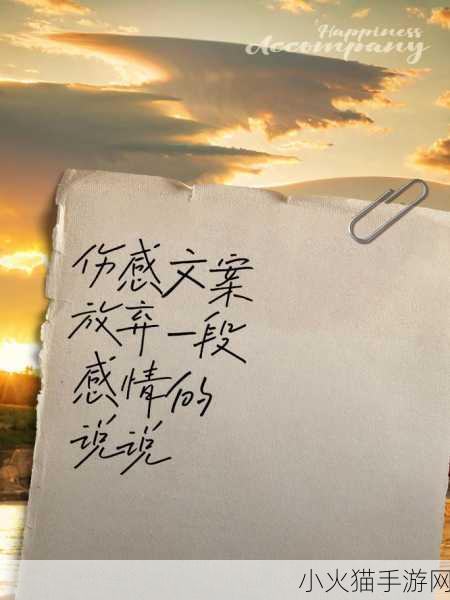 Happiness
Accompany
伤感文案
放弃一段
感情的
说说
小火猫手游网